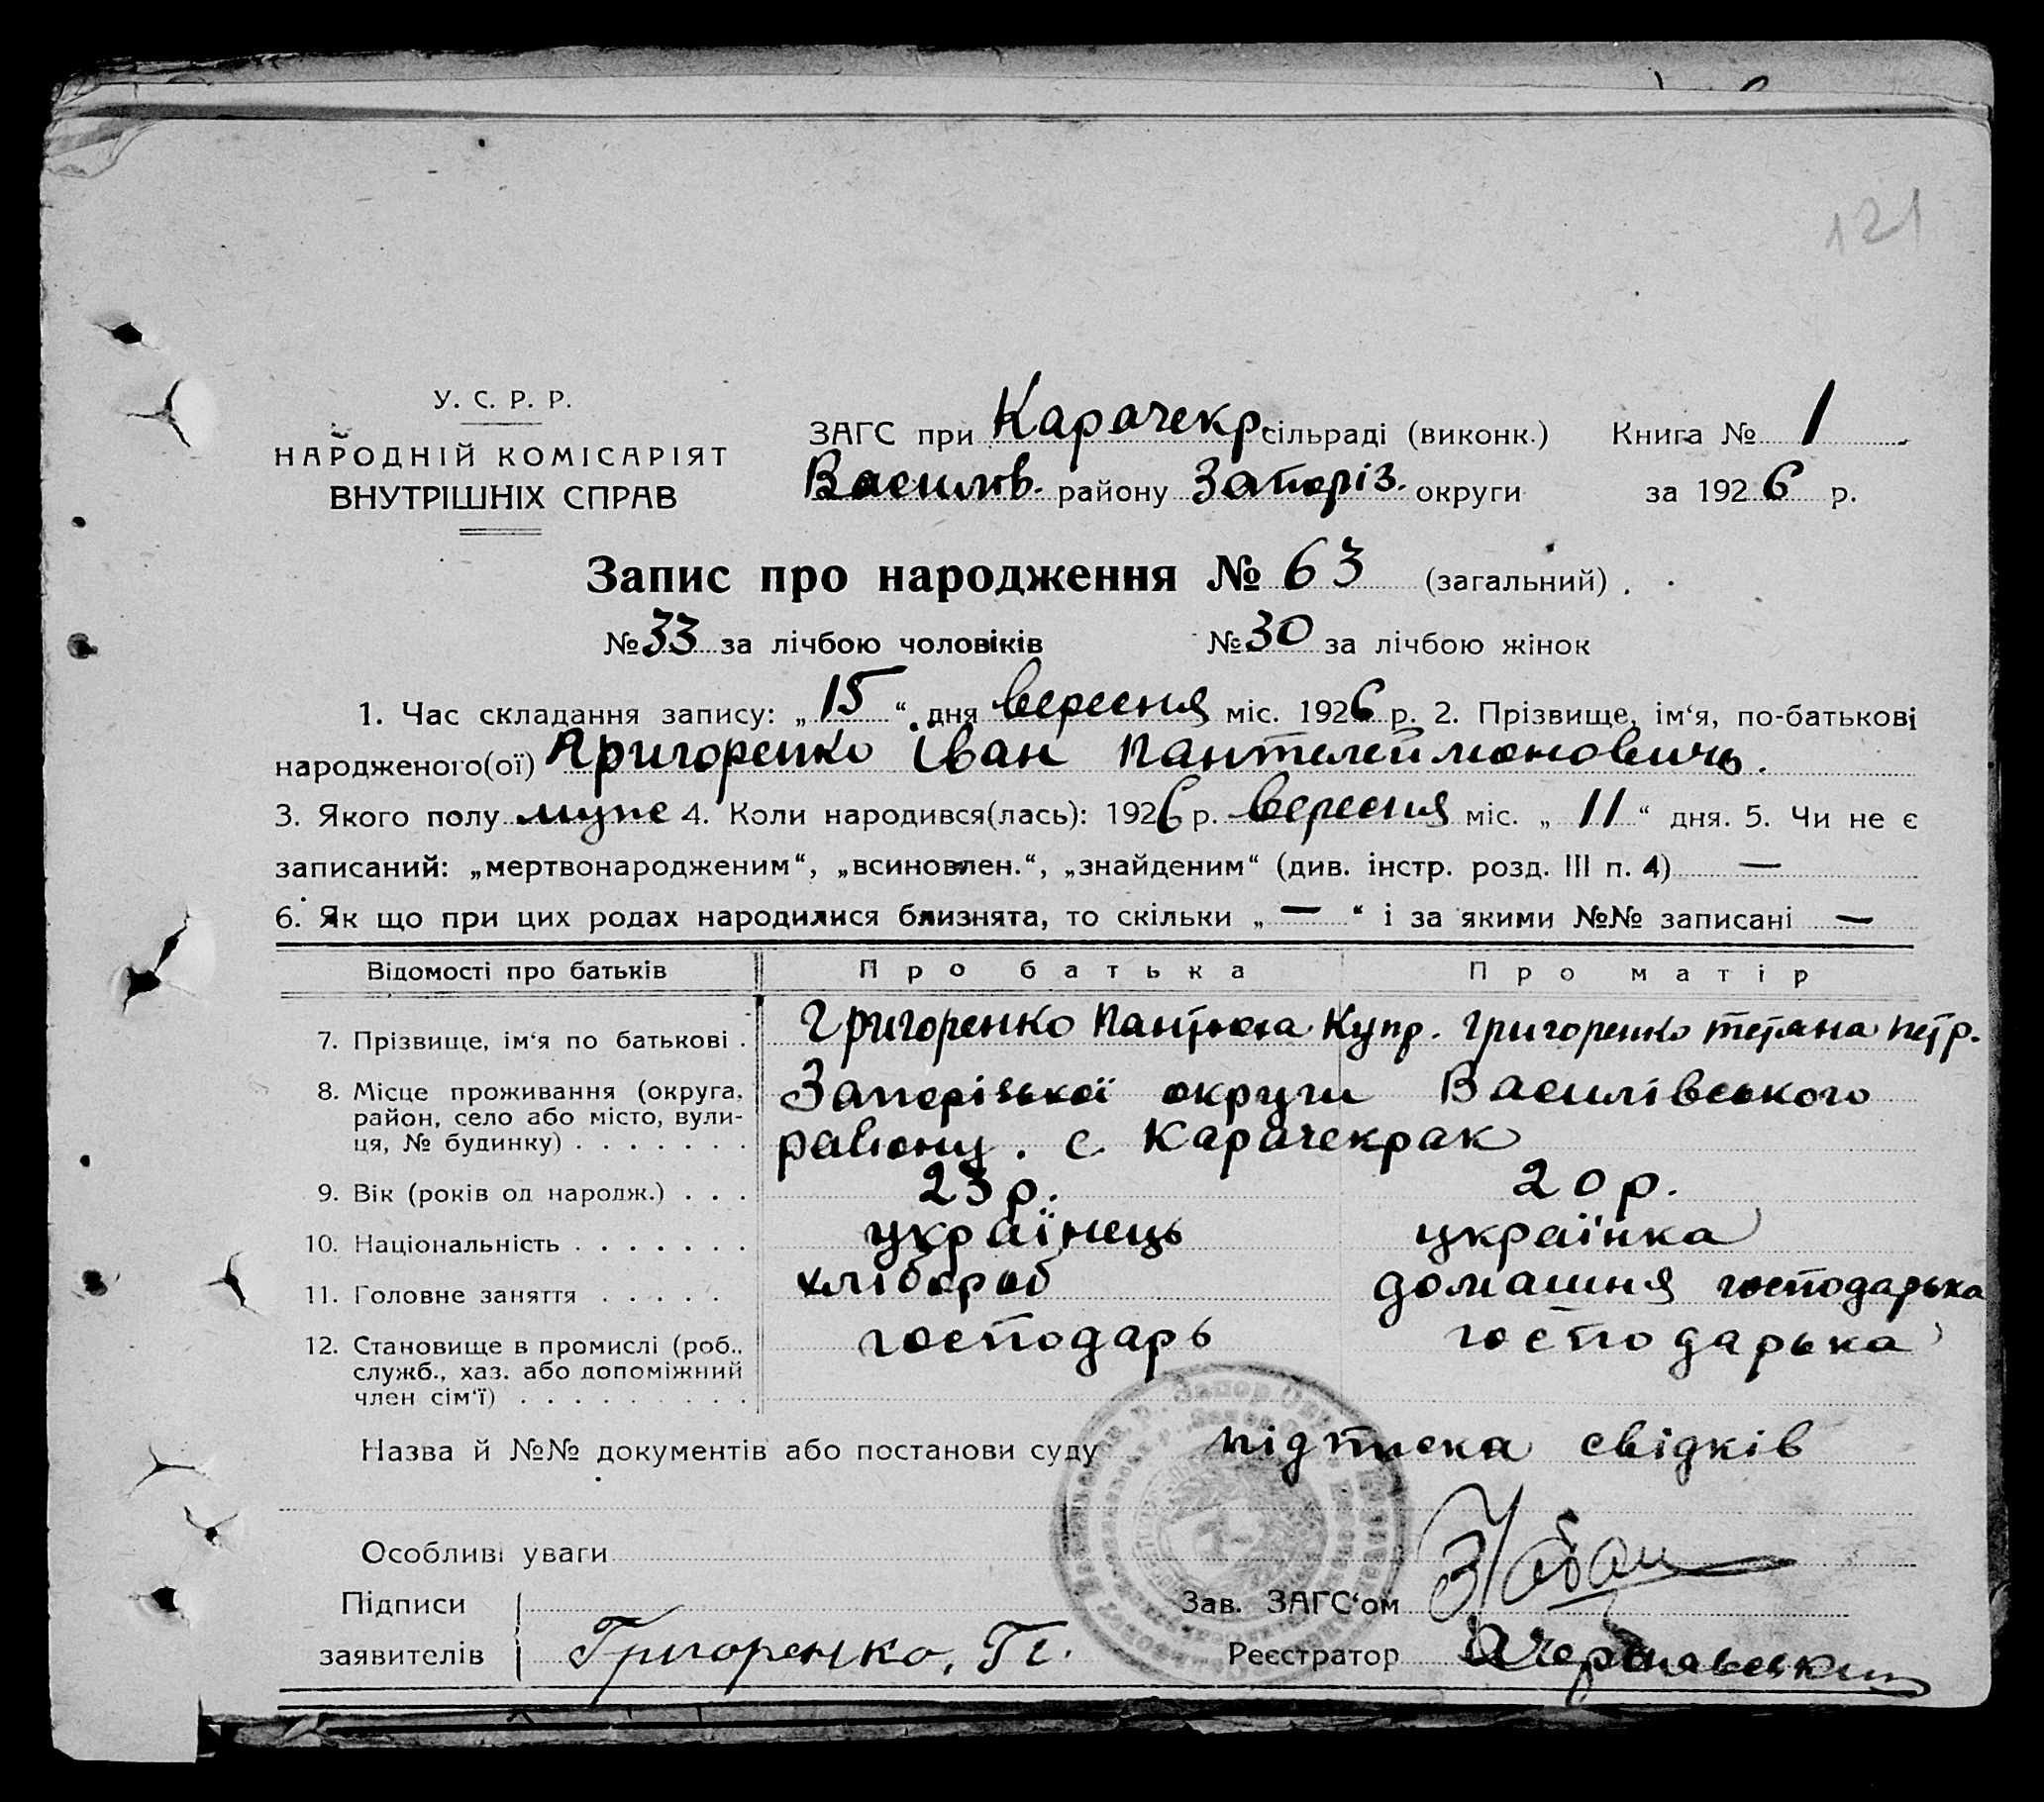 121
У. С. Р. Р.
НАРОДНІЙ КОМІСАРІЯТ
ВНУТРІШНІХ СПРАВ
ЗАГС при Карачекр сільраді (виконк.) Книга № 1
Василів. району Запоріз. округи за 1926 р.
Запис про народження № 63 (загальний).
№ 33 за лічбою чоловіків № 30 за лічбою жінок
1. Час складання запису: „15“ дня вересня міс. 1926 р. 2. Прізвище, ім‘я, по-батькові
народженого(ої) Григоренко Іван Пантелеймоновичь.
3. Якого полу муже 4. Коли народився(лась): 1926 р. вересня міс. „11“ дня. 5. Чи не є
записаний: „мертвонародженим“, „всиновлен.“, „знайденим“ (див. інстр. розд. III п. 4) —
6. Як що при цих родах народилися близнята, то скільки „—“ і за якими №№ записані —
Відомості про батьків Про батька Про матір
7. Прізвище, ім‘я по батькові . Григоренко Купр. Григоренко Тетяна Петр.
8. Місце проживання (округа, Запорізької округи Василівського
район, село або місто, вули-
ця, № будинку) . . . . . . . району. с. Карачекрак
9. Вік (років од народж.) . . . 23 р. 20 р.
10. Національність . . . . . . . українець українка
11. Головне заняття . . . . . хлібороб домашня господарька
12. Становище в промислі (роб., господарь господарька
служб., хаз. або допоміжний
член сім‘ї) . . . . . . . . .
Назва й №№ документів або постанови суду підписка свідків
Особливі уваги
Підписи Зав. ЗАГС‘ом
заявителів Григоренко, П. Реєстратор